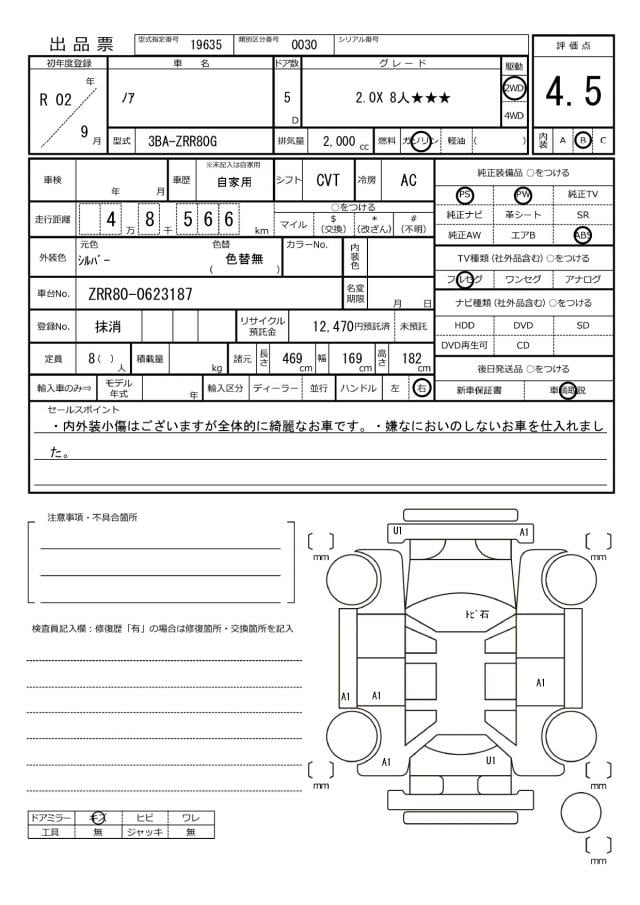 出品票
型式指定番号 19635 類別区分番号 0030 シリアル番号
評価点
4.5
初年度登録 車名 ドア数 グレード 駆動
R 02 年
9 月
ノア
5 D
2.0X 8人★★★
2WD
4WD
型式 3BA-ZRR80G 排気量 2,000 cc 燃料 ガソリン 軽油 ( )
内装 A B C
車検 年 月 車歴 ※未記入は自家用 自家用 シフト CVT 冷房 AC
純正装備品 ○をつける
PS PW 純正TV
走行距離 4 万 8 千 5 6 6 km
○をつける
マイル $ (交換) * (改ざん) # (不明)
純正ナビ 革シート SR
純正AW エアB ABS
外装色 元色 シルバー 色替 ( 色替無 ) カラーNo. 内装色
TV種類 (社外品含む) ○をつける
フルセグ ワンセグ アナログ
車台No. ZRR80-0623187 名変期限 月 日
ナビ種類 (社外品含む) ○をつける
登録No. 抹消 リサイクル預託金 12,470円預託済 未預託
HDD DVD SD
DVD再生可 CD
定員 8( ) 人 積載量 kg 諸元 長さ 469 cm 幅 169 cm 高さ 182 cm
後日発送品 ○をつける
輸入車のみ⇒ モデル年式 年 輸入区分 ディーラー 並行 ハンドル 左 右
新車保証書 車輌取説
セールスポイント
・内外装小傷はございますが全体的に綺麗なお車です。・嫌なにおいのしないお車を仕入れまし
た。
注意事項・不具合箇所
検査員記入欄：修復歴「有」の場合は修復箇所・交換箇所を記入
U1 A1
mm mm
トビ石
A1 A1 A1
A1 U1
mm mm
mm
ドアミラー キズ ヒビ ワレ
工具 無 ジャッキ 無